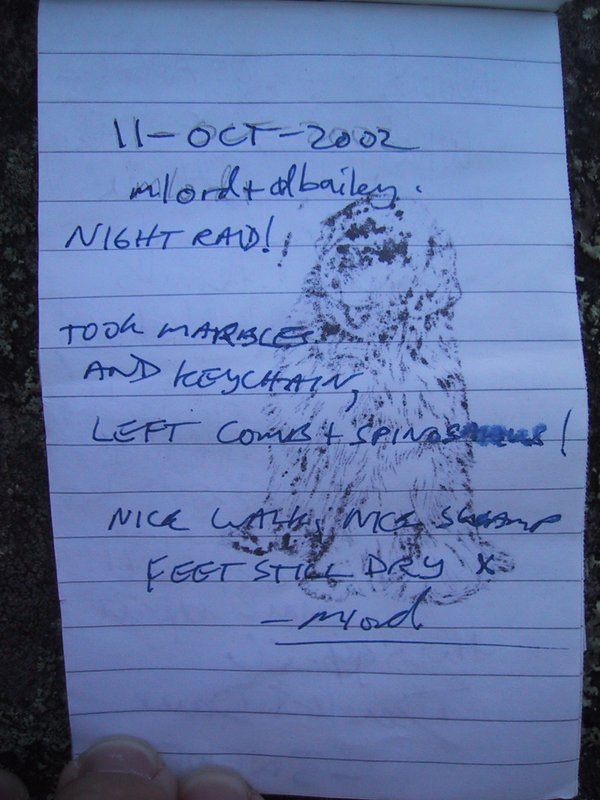 11-OCT-2002
mlord + dbailey.
NIGHT RAID!
TOOK MARBLES
AND KEYCHAIN,
LEFT COMB + SPINOSAURUS!
NICE WALK, NICE SWAMP
FEET STILL DRY X
- mlord